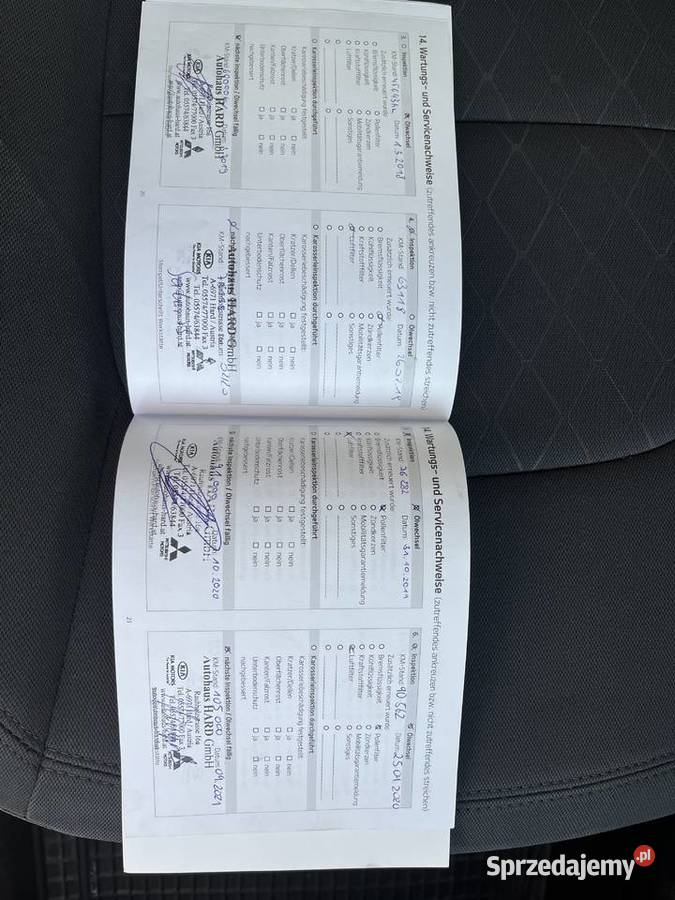 14. Wartungs- und Servicenachweise (zutreffendes ankreuzen bzw. nicht zutreffendes streichen)
3. Inspektion
Ölwechsel
KM-Stand
Datum 1.3.2018
Zusätzlich erneuert wurde:
Bremsflüssigkeit
Pollenfilter
Kühlflüssigkeit
Zündkerzen
Kraftstofffilter
Mobilitätsgarantiemeldung
Luftfilter
Sonstiges
Karosserieinspektion durchgeführt
Karosseriebeschädigung festgestellt:
Kratzer/Dellen ja nein
Oberflächenrost ja nein
Kanten/Falzrost ja nein
Unterbodenschutz ja nein
nachgebessert
nächste Inspektion / Ölwechsel fällig
KM-Stand
Autohaus HARD GmbH
A-6971 Hard / Austria
Tel. 05574/77000 Fax 3
Tel. 05574/63844
www.autohaus-hard.at
KIA
KIA MOTORS
20
4. Inspektion
Ölwechsel
KM-Stand 63118 Datum
Zusätzlich erneuert wurde:
Bremsflüssigkeit
Pollenfilter
Kühlflüssigkeit
Zündkerzen
Kraftstofffilter
Mobilitätsgarantiemeldung
Luftfilter
Sonstiges
Karosserieinspektion durchgeführt
Karosseriebeschädigung festgestellt:
Kratzer/Dellen ja nein
Oberflächenrost ja nein
Kanten/Falzrost ja nein
Unterbodenschutz ja nein
nachgebessert
KM-Stand
Autohaus HARD GmbH
A-6971 Hard / Austria
Tel. 05574/77000 Fax 3
Tel. 05574/63844
www.autohaus-hard.at
KIA
KIA MOTORS
Stempel/Unterschrift Werkstätte
Wartungs- und Servicenachweise (zutreffendes ankreuzen bzw. nicht zutreffendes streichen)
Inspektion
Ölwechsel
KM-Stand 76282 Datum 31.10.2019
Zusätzlich erneuert wurde:
Bremsflüssigkeit
Pollenfilter
Kühlflüssigkeit
Zündkerzen
Kraftstofffilter
Mobilitätsgarantiemeldung
Luftfilter
Sonstiges
Karosserieinspektion durchgeführt
Karosseriebeschädigung festgestellt:
Kratzer/Dellen ja nein
Oberflächenrost ja nein
Kanten/Falzrost ja nein
Unterbodenschutz ja nein
nachgebessert
nächste Inspektion / Ölwechsel fällig
Datum 10.2020
KIA
KIA MOTORS
21
6. Inspektion
Ölwechsel
KM-Stand 90562 Datum
Zusätzlich erneuert wurde:
Bremsflüssigkeit
Pollenfilter
Kühlflüssigkeit
Zündkerzen
Kraftstofffilter
Mobilitätsgarantiemeldung
Luftfilter
Sonstiges
Karosserieinspektion durchgeführt
Karosseriebeschädigung festgestellt:
Kratzer/Dellen ja nein
Oberflächenrost ja nein
Kanten/Falzrost ja nein
Unterbodenschutz ja nein
nachgebessert
nächste Inspektion / Ölwechsel fällig
KM-Stand 105000 Datum 09.2021
Autohaus HARD GmbH
A-6971 Hard / Austria
Tel. 05574/77000 Fax 3
KIA
KIA MOTORS
Sprzedajemy.pl